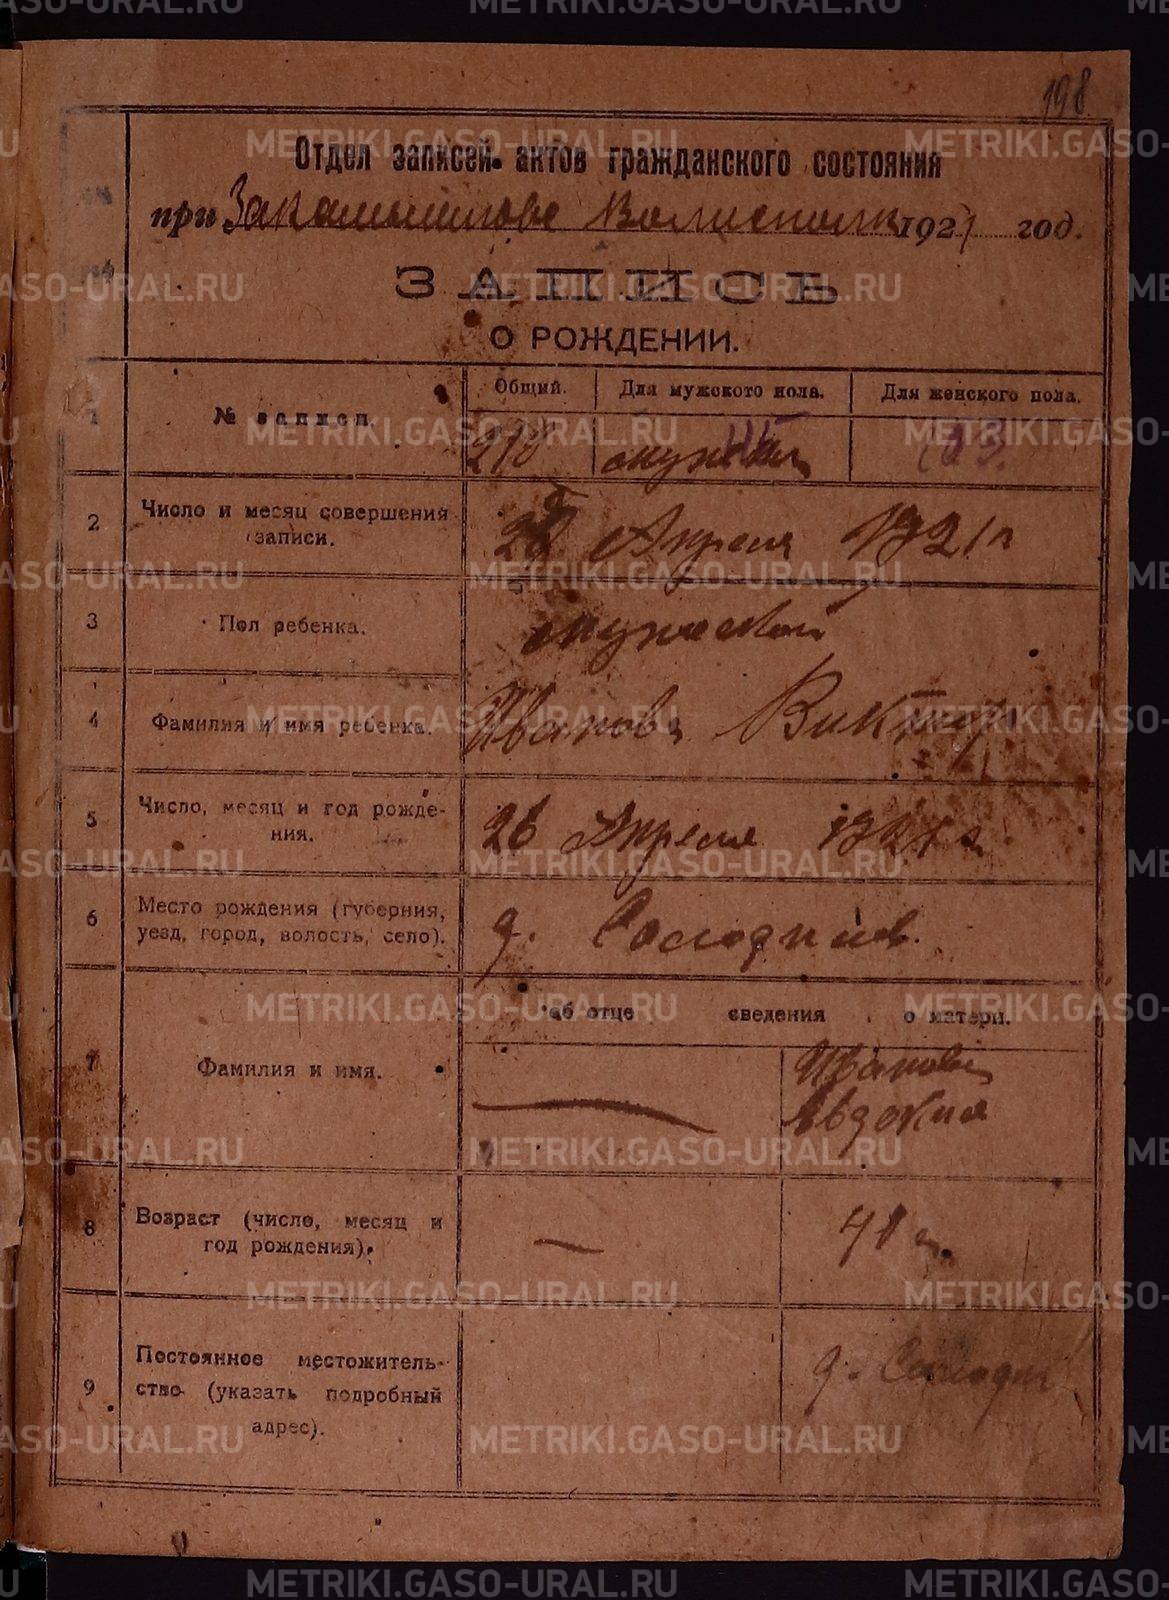 198
Отдел записей актов гражданского состояния
при Закамышловс Волисполк 1921 год.
ЗАПИСЬ
О РОЖДЕНИИ.
1 № записи. Общий. Для мужского пола. Для женского пола.
218 103.
2 Число и месяц совершения записи. Апреля 1921 г
3 Пол ребенка. мужской
4 Фамилия и имя ребенка. Иванов Виктор
5 Число, месяц и год рожде-
ния. 26 Апреля 1921 г.
6 Место рождения (губерния,
уезд, город, волость, село). д.
об отце сведения о матери.
7 Фамилия и имя. Иванова
Авдокия
8 Возраст (число, месяц и
год рождения).
9 Постоянное местожитель-
ство (указать подробный
адрес). д.
METRIKI.GASO-URAL.RU